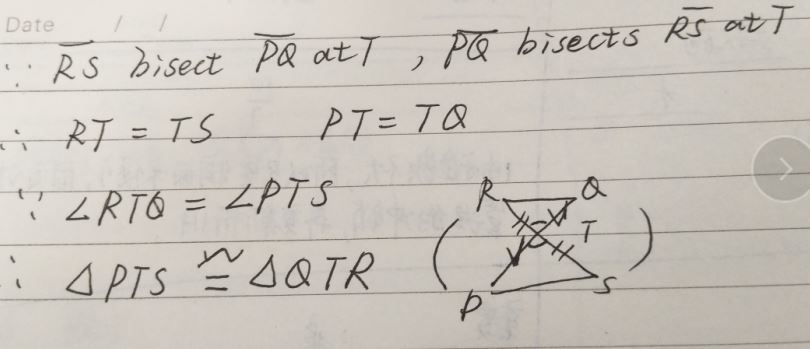 Date / /
∵ R̅S̅ bisect P̅Q̅ at T , P̅Q̅ bisects R̅S̅ at T
∴ RT = TS PT = TQ
∵ ∠RTQ = ∠PTS
∴ △PTS ≅ △QTR ( R Q T P S )